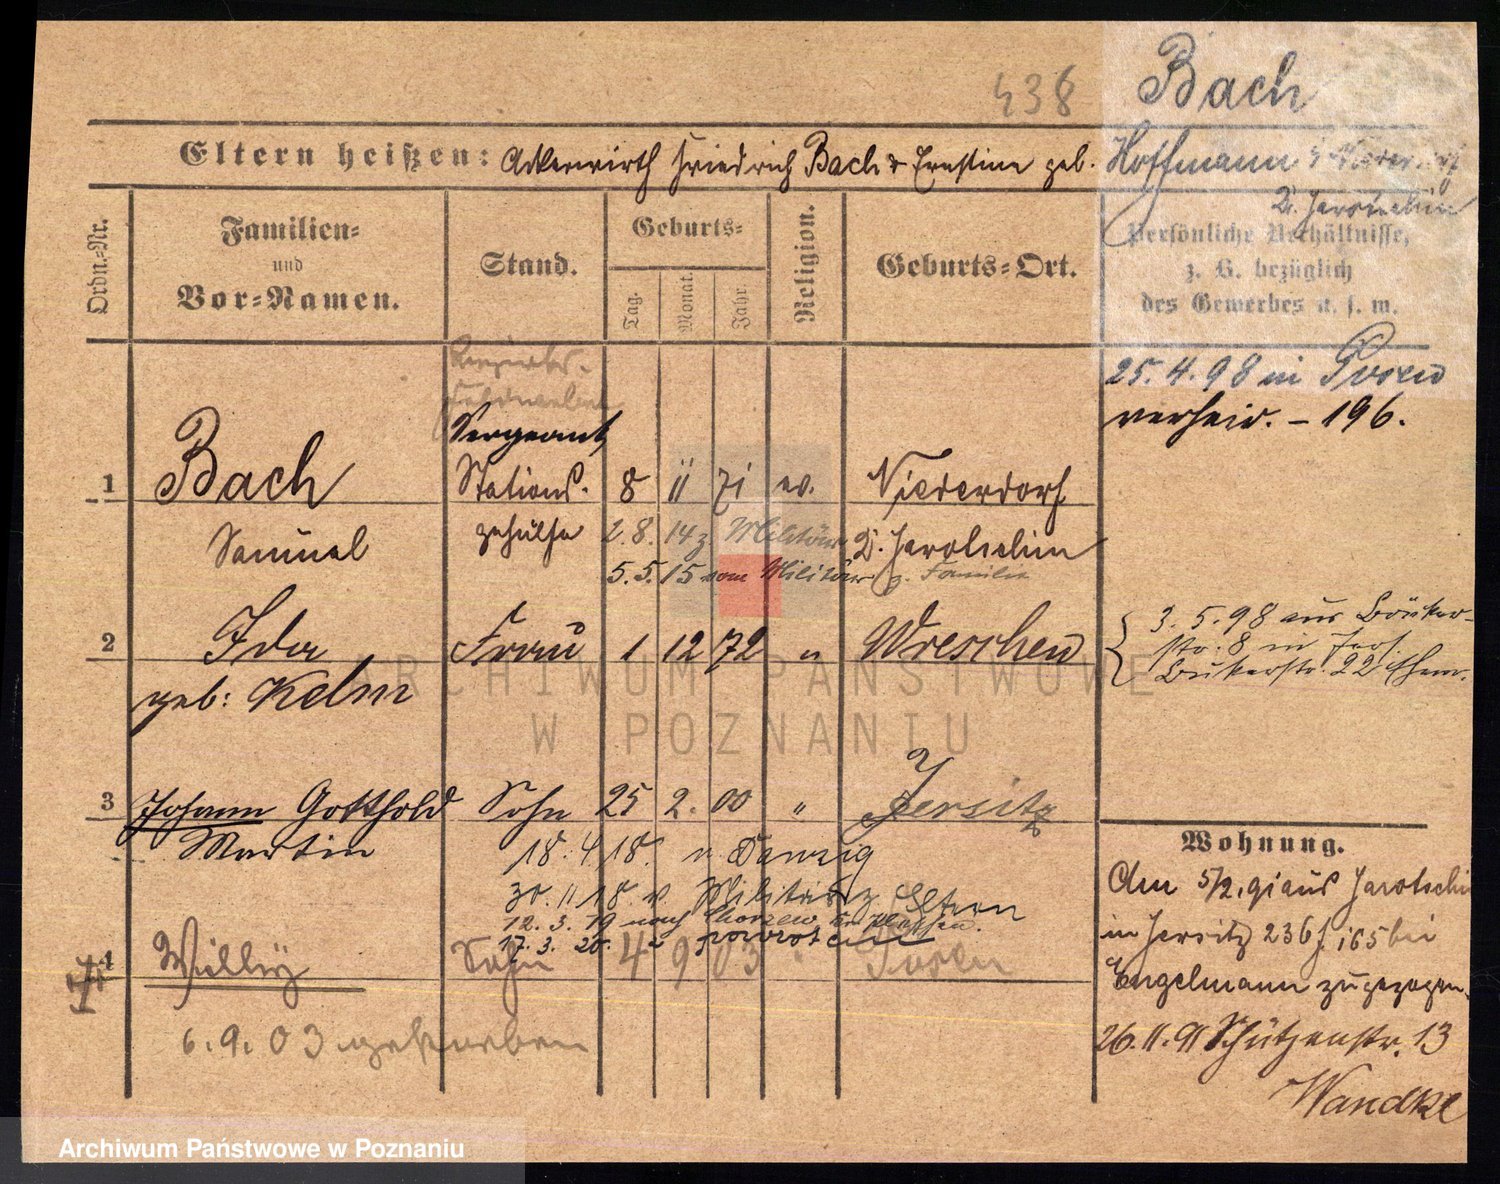 438
Bach
Eltern heißen: Ackerwirth Friedrich Bach & Ernstine geb. Hoffmann
D. Jarotschin
Ordn.-Nr.
Familien- und Vor-Namen.
Stand.
Geburts-
Tag.
Monat.
Jahr.
Religion.
Geburts-Ort.
Persönliche Verhältnisse, z. B. bezüglich des Gewerbes u. s. m.
25. 4. 98 in Posen
verheir. - 196.
Bezirks-
Feldwebel
Sergeant
1 Bach Stations- 8 11 71 ev. Niederdorf
Samuel gehülfe 2. 8. 14 z. Militär D. Jarotschin
5. 5. 15 vom Militär z. Familie
2 Ida Frau 1 12 72 " Wreschen
geb: Kelm
3. 5. 98 aus
str. 8 in Jers.
Bukerstr. 22
3 Johann Gotthold Sohn 25 2. 00 " Jersitz
Martin
18. 4. 18. n. Danzig
30. 11. 18. v. Militär z. Eltern
12. 3. 19 nach
17. 3. 20.
4 Willy Sohn 4 9 03 " Posen
6. 9. 03 gestorben
Wohnung.
Am 5/2. 91 aus Jarotschin
in Jersitz 236 f. 165 bei
Engelmann zugezogen.
26. 11. 91 Schützenstr. 13
Wandke
ARCHIWUM PAŃSTWOWE
W POZNANIU
Archiwum Państwowe w Poznaniu